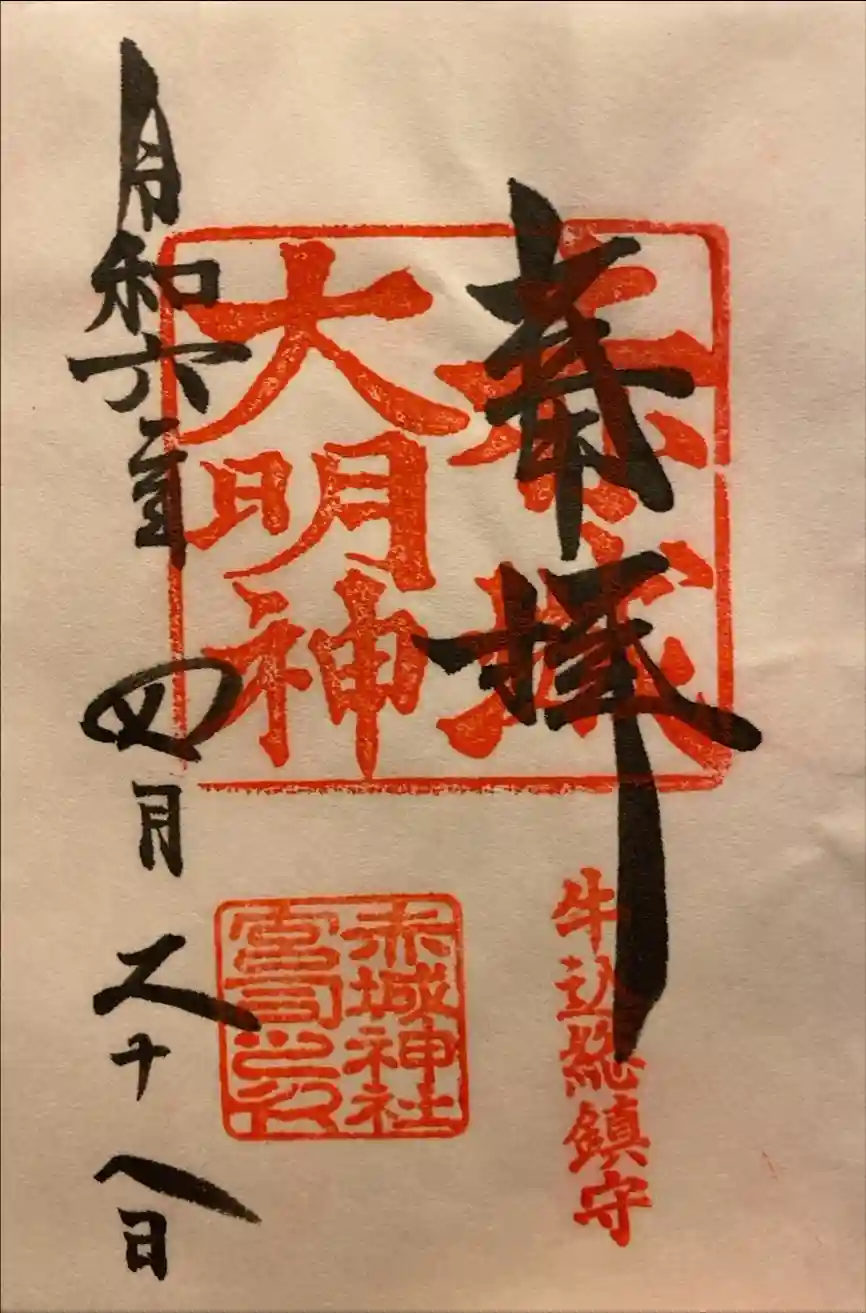 奉拝
赤城
大明神
牛込総鎮守
赤城神社
宮司之印
令和六年四月二十八日